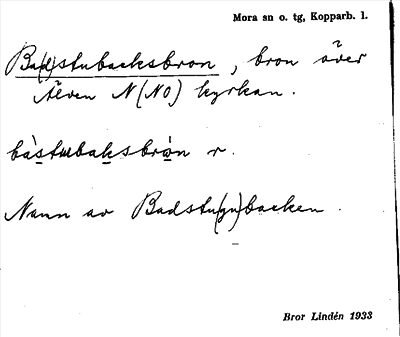 Mora sn o. tg, Kopparb. l.
Ba(d)stubacksbron, bron över
älven N (NO) kyrkan.
bàstubaksbròn r.
Namn av Badstu(gu)backen.
Bror Lindén 1933